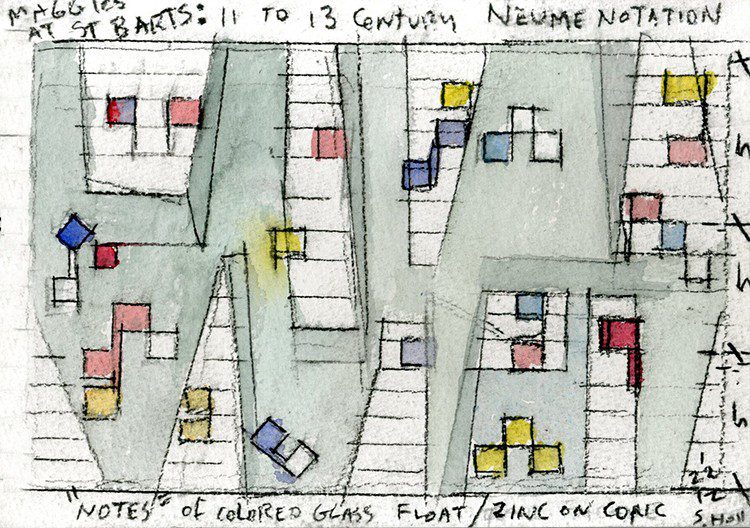 MAGGIES
AT ST BARTS: 11 TO 13 CENTURY NEUME NOTATION
"NOTES" OF COLORED GLASS FLOAT / ZINC ON
S. Holl